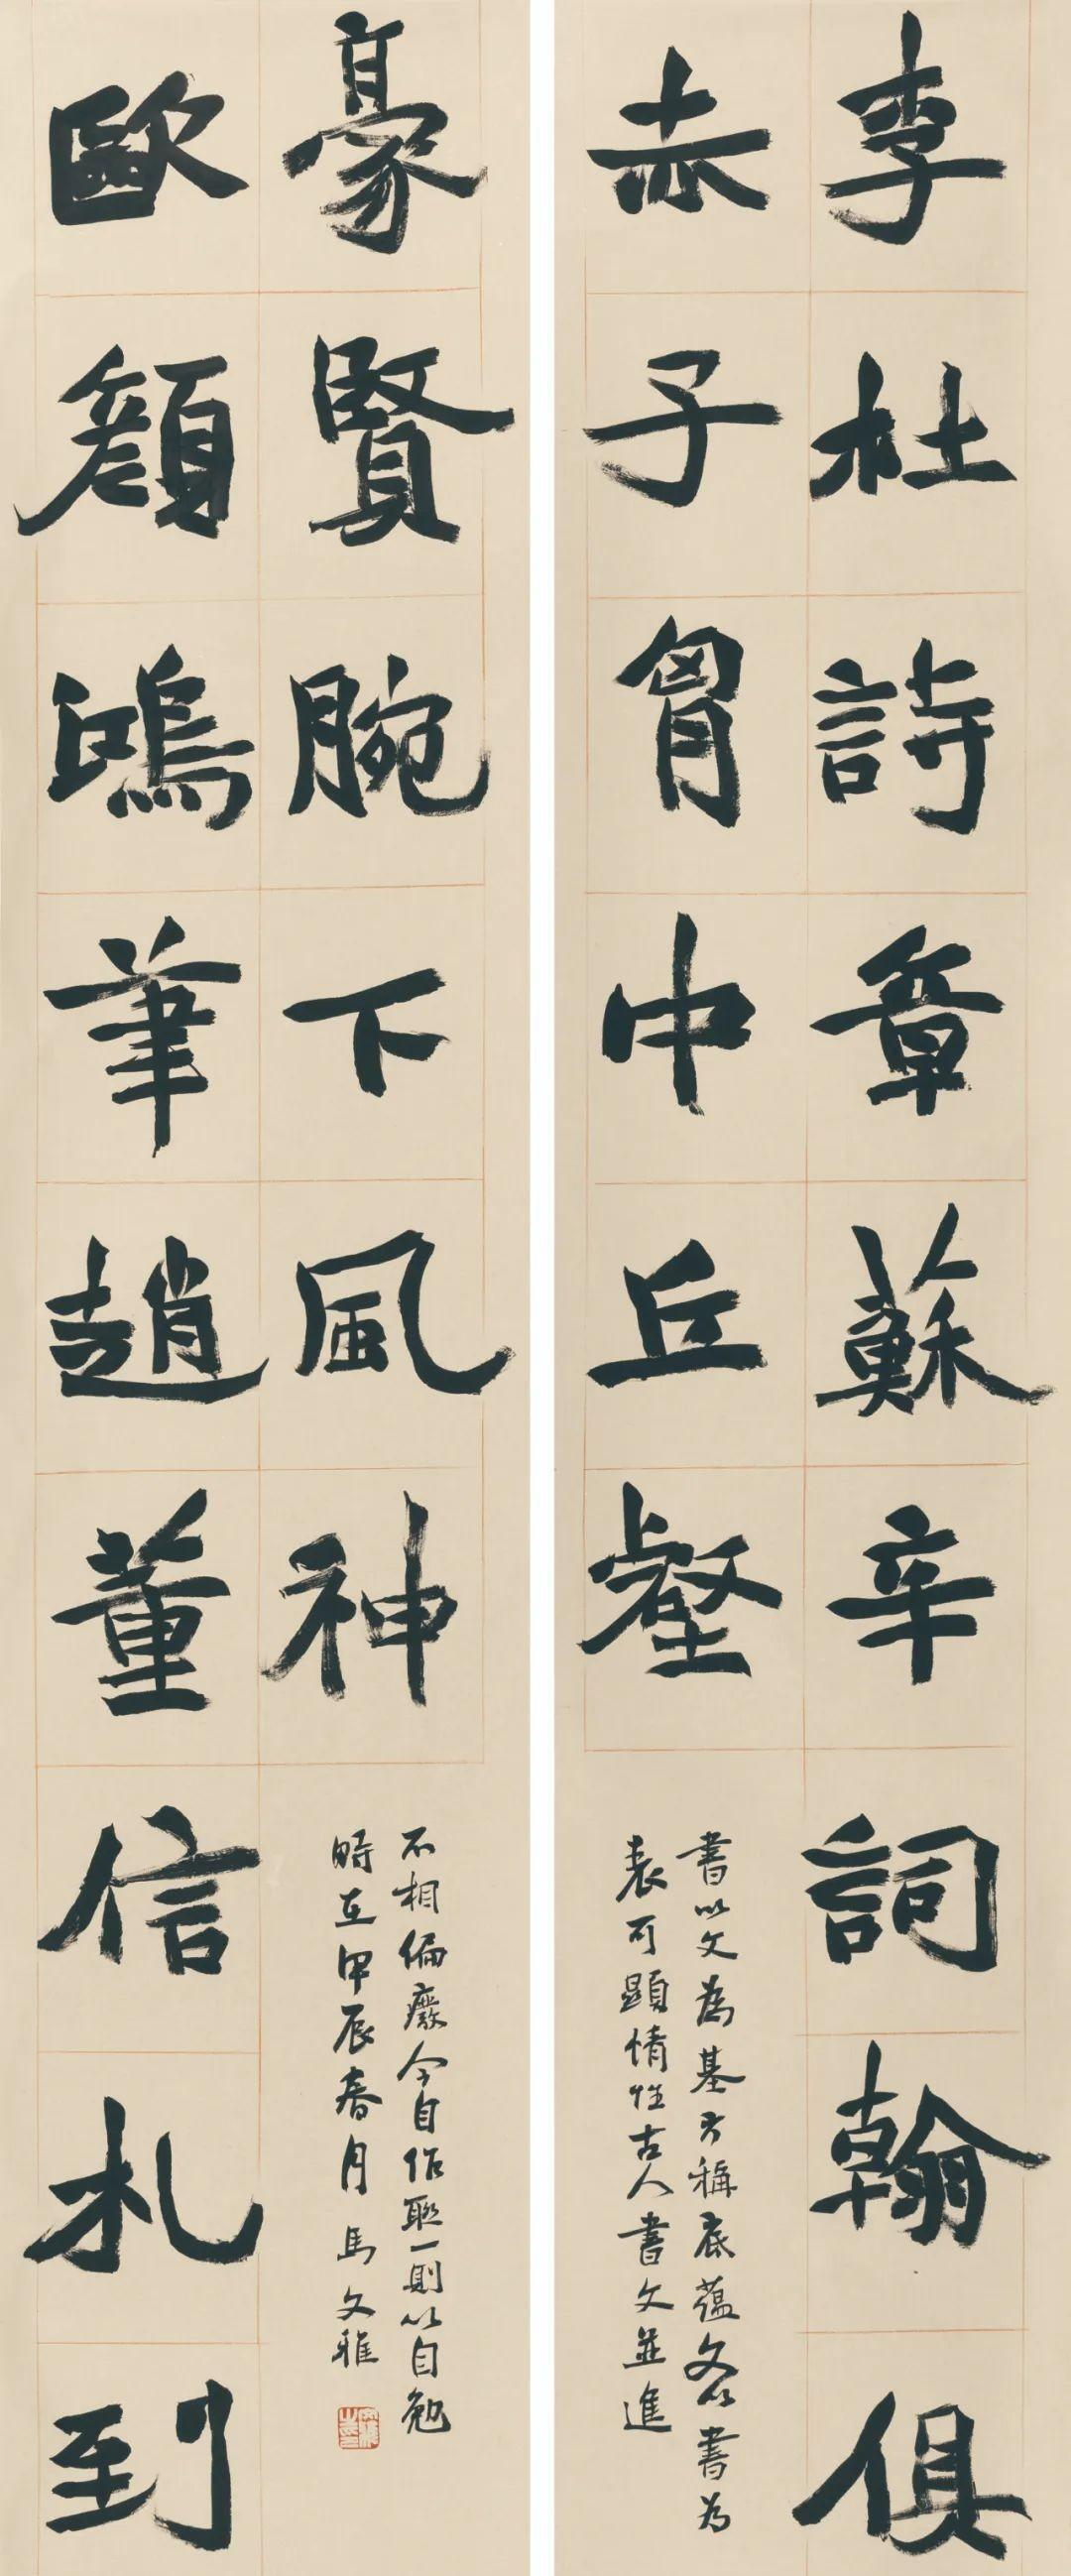 李杜詩章蘇辛詞翰俱
赤子胷中丘壑
書以文為基方稱底蘊文以書為
表可顯情性古人書文並進
歐顏鴻筆趙董信札到
豪賢腕下風神
不相偏廢今自作聯一則以自勉
時在甲辰春月馬文雅